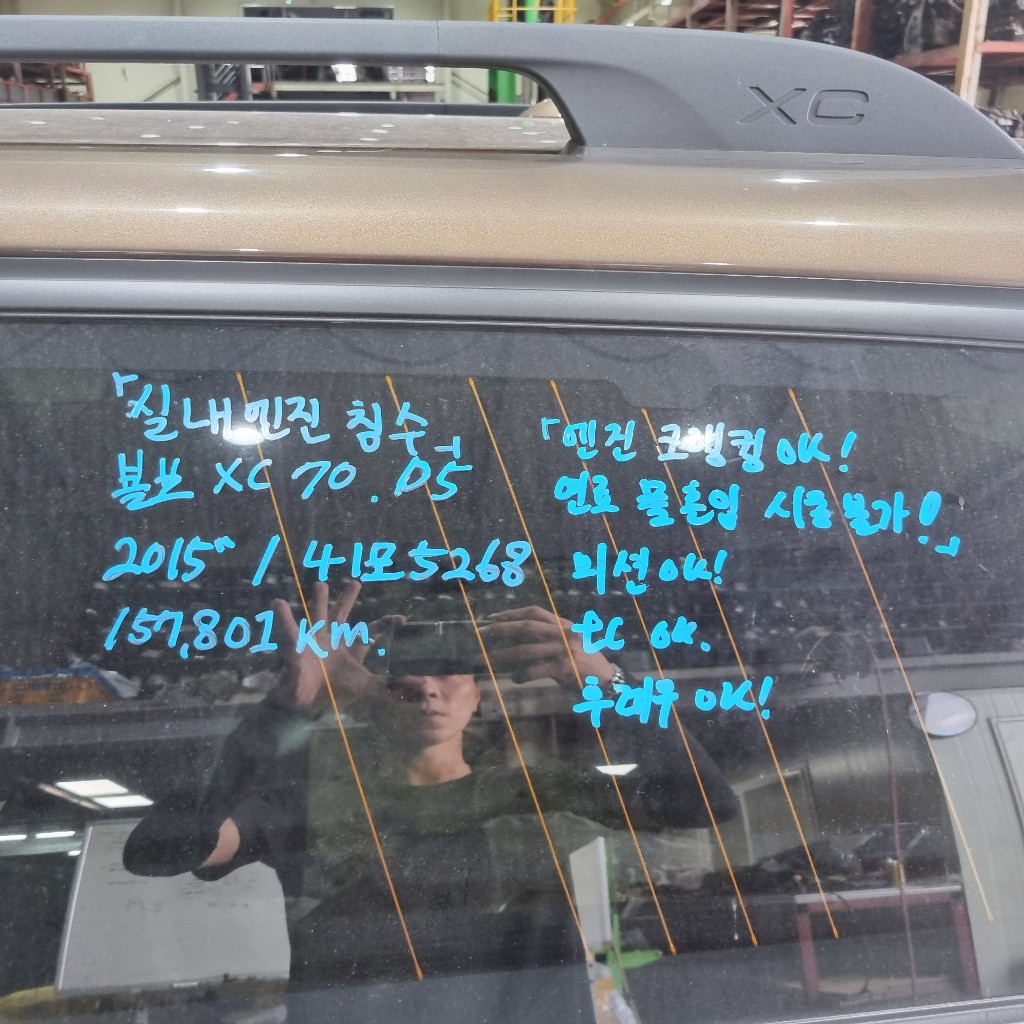 XC
「실내엔진 침수」
볼보 XC 70. D5
2015" / 41모5268
157,801 Km.
「엔진 크랭킹 OK!
연료 물혼입 시동불가!」
미션 OK!
t/c OK.
후레우 OK!